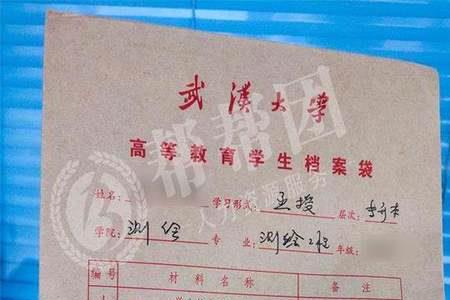 武汉大学
高等教育学生档案袋
姓名: 学习形式: 函授 层次: 专升本
学院: 测绘 专业: 测绘2班 年级:
编号 材料名称 备注
帮帮团
人力资源服务